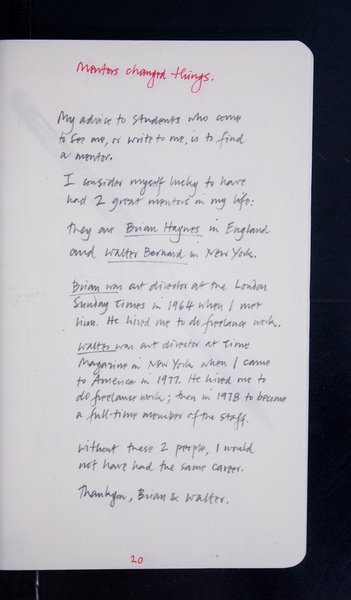 Mentors changed things.
My advice to students who come
to see me, or write to me, is to find
a mentor.
I consider myself lucky to have
had 2 great mentors in my life:
They are Brian Haynes in England
and Walter Bernard in New York.
Brian was art director at the London
Sunday Times in 1964 when I met
him. He hired me to do freelance work.
Walter was art director at Time
Magazine in New York when I came
to America in 1977. He hired me to
do freelance work; then in 1978 to become
a full-time member of the staff.
Without these 2 people, I would
not have had the same career.
Thankyou, Brian & Walter.
20